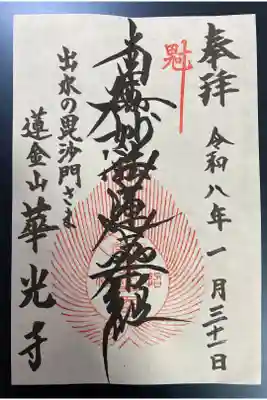 奉拝
令和八年一月三十一日
魁
南無妙法蓮華経
出水の毘沙門さま
蓮金山 華光寺